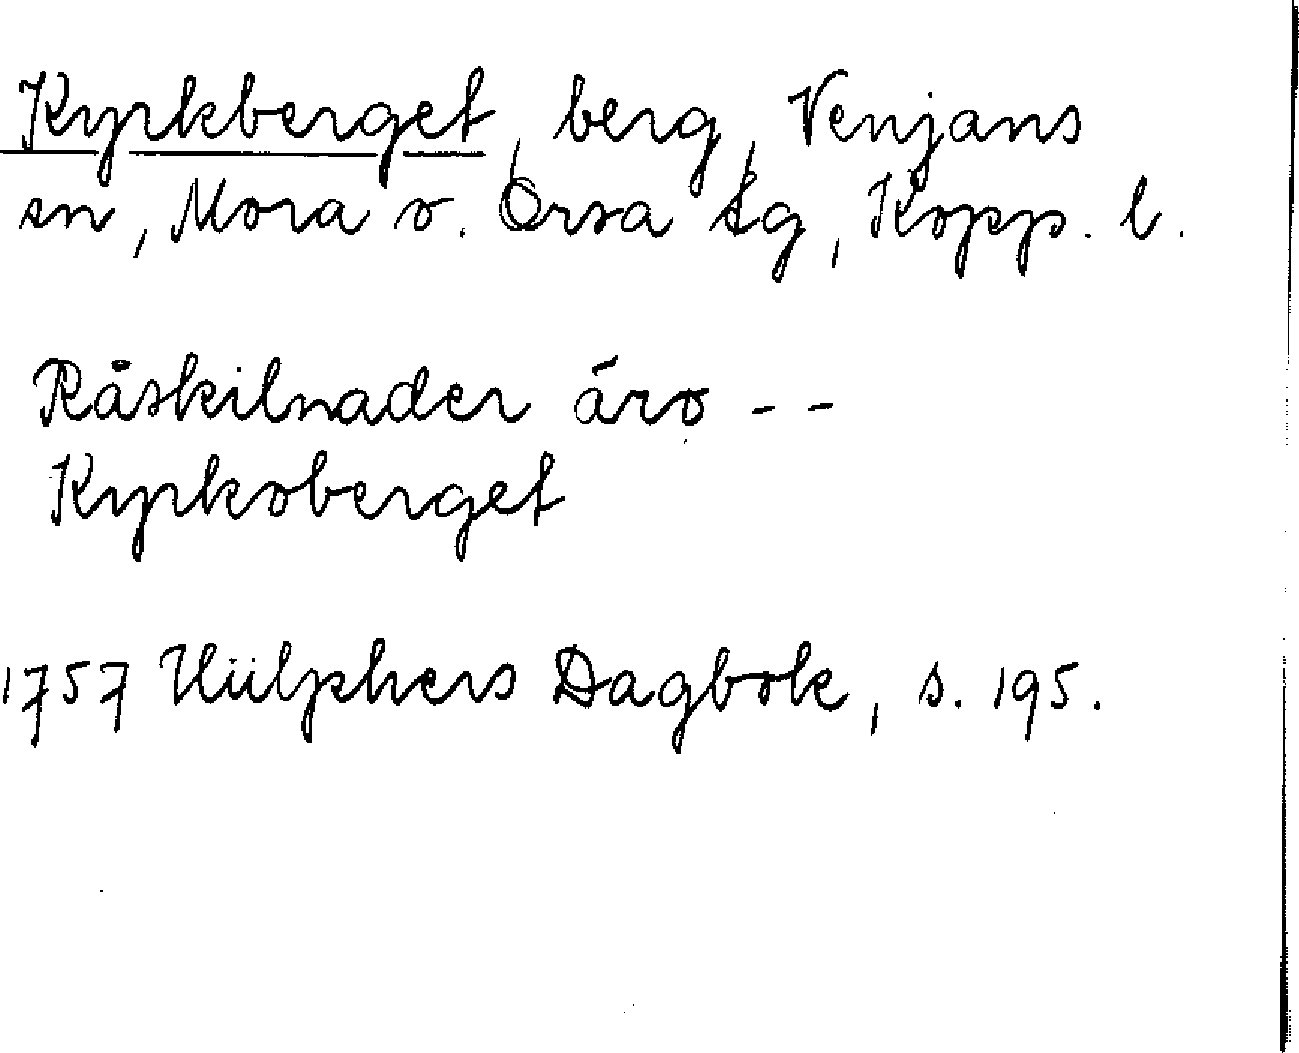 Kyrkberget, berg, Venjans
sn, Mora o. Orsa tg, Kopp. l.
Råskilnader äro - -
Kyrkoberget
1757 Hülphers Dagbok, s. 195.